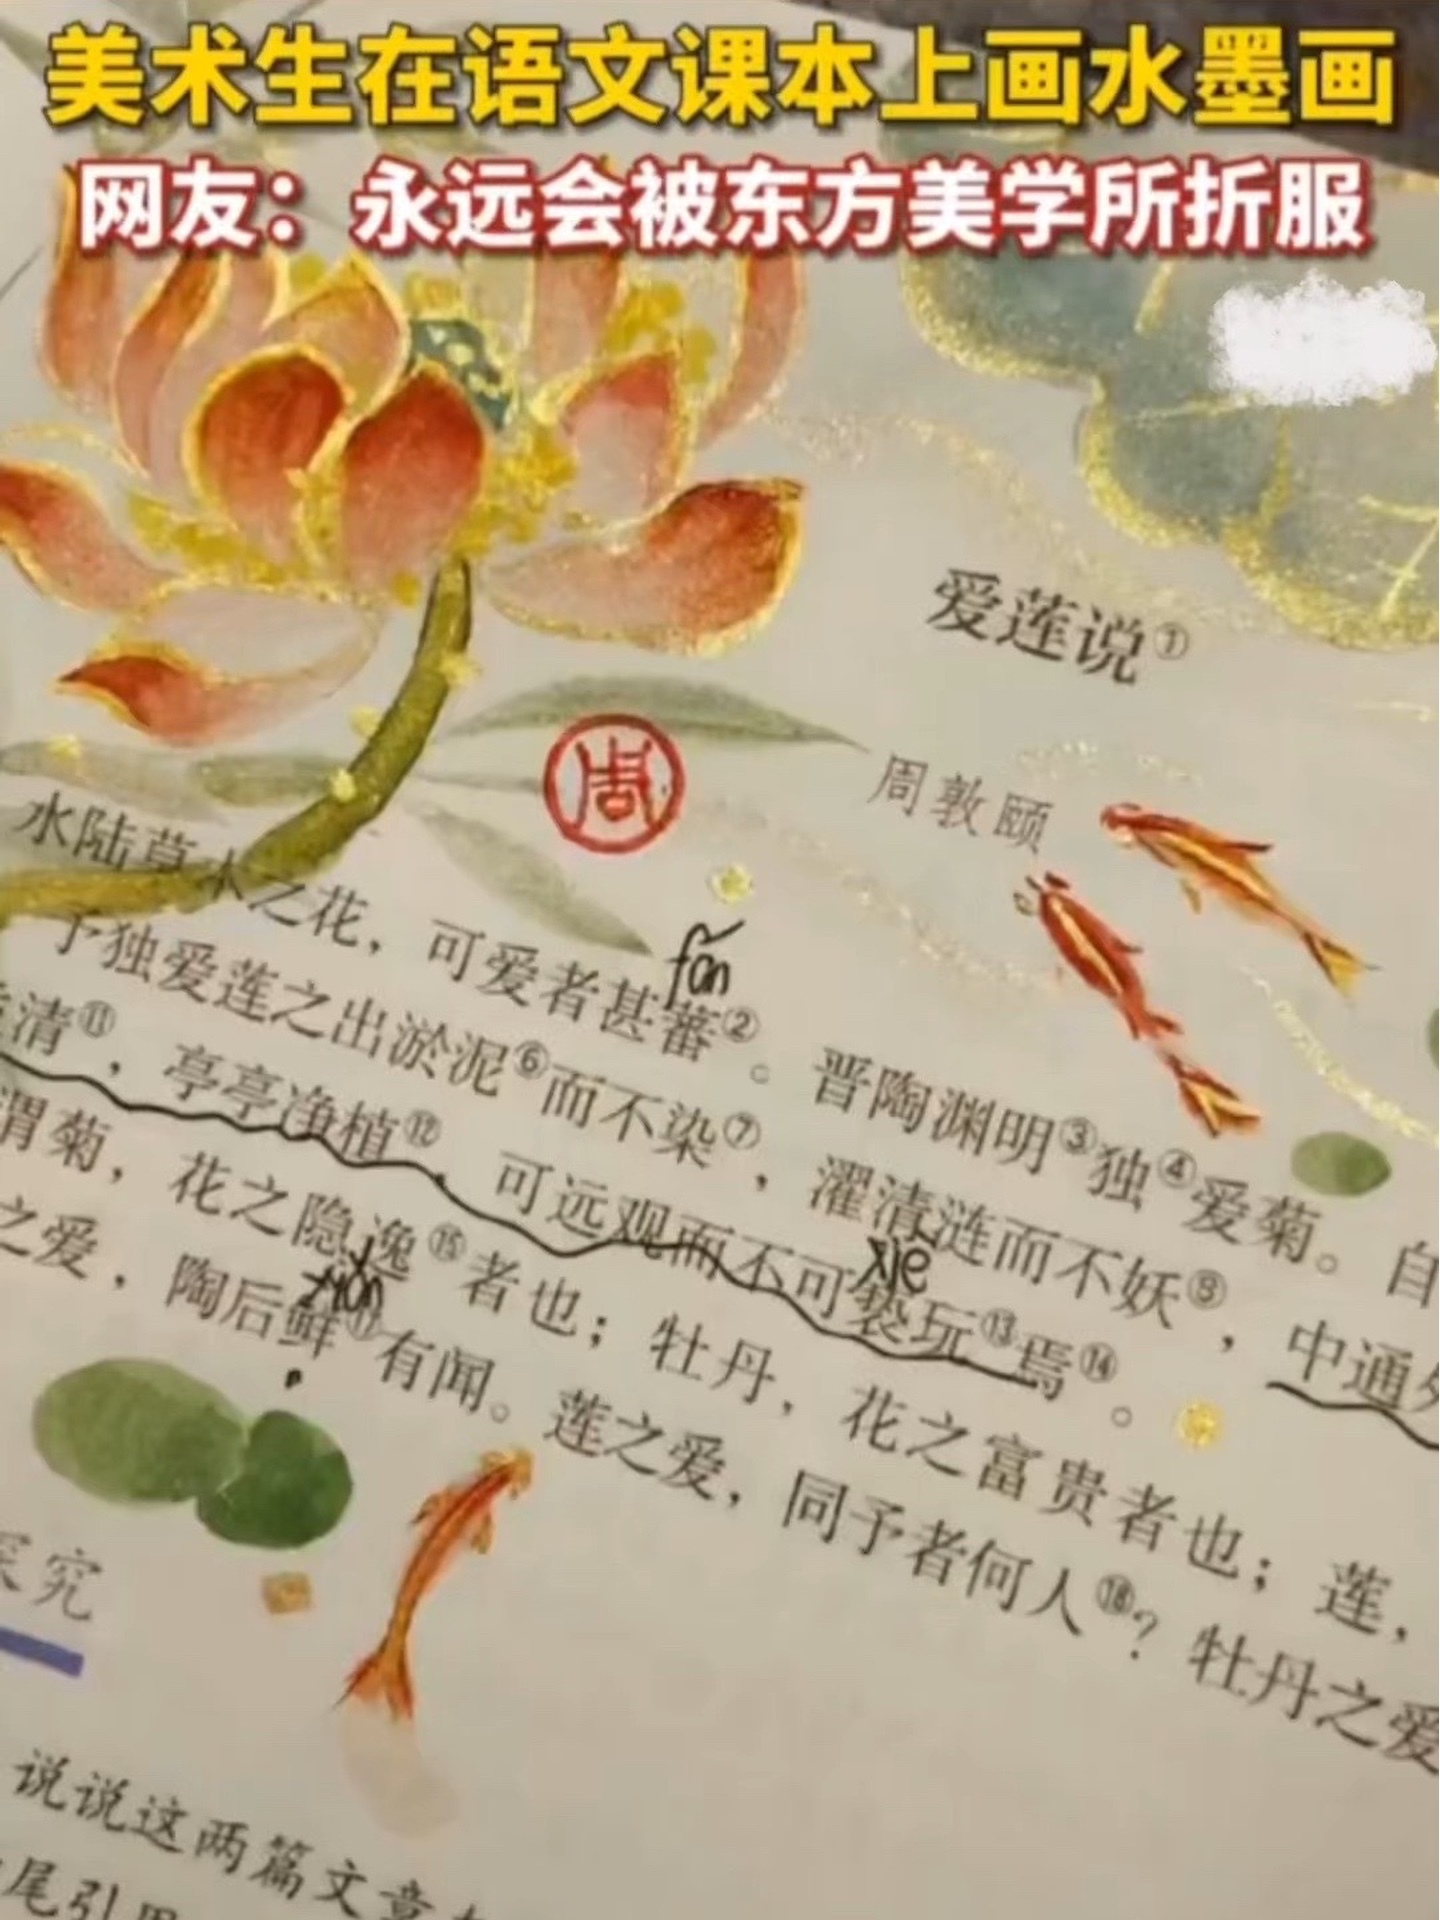 美术生在语文课本上画水墨画
网友：永远会被东方美学所折服
爱莲说①
周
周敦颐
fán
水陆草木之花，可爱者甚蕃②。晋陶渊明③独④爱菊。自
予独爱莲之出淤泥⑥而不染⑦，濯清涟而不妖⑨，中通外
清⑪，亭亭净植⑫，可远观而不可亵玩⑬焉⑭。
xiè
谓菊，花之隐逸⑮者也；牡丹，花之富贵者也；莲，
xiǎn
之爱，陶后鲜⑰有闻。莲之爱，同予者何人⑱？牡丹之爱
探究
说说这两篇文章
尾引用